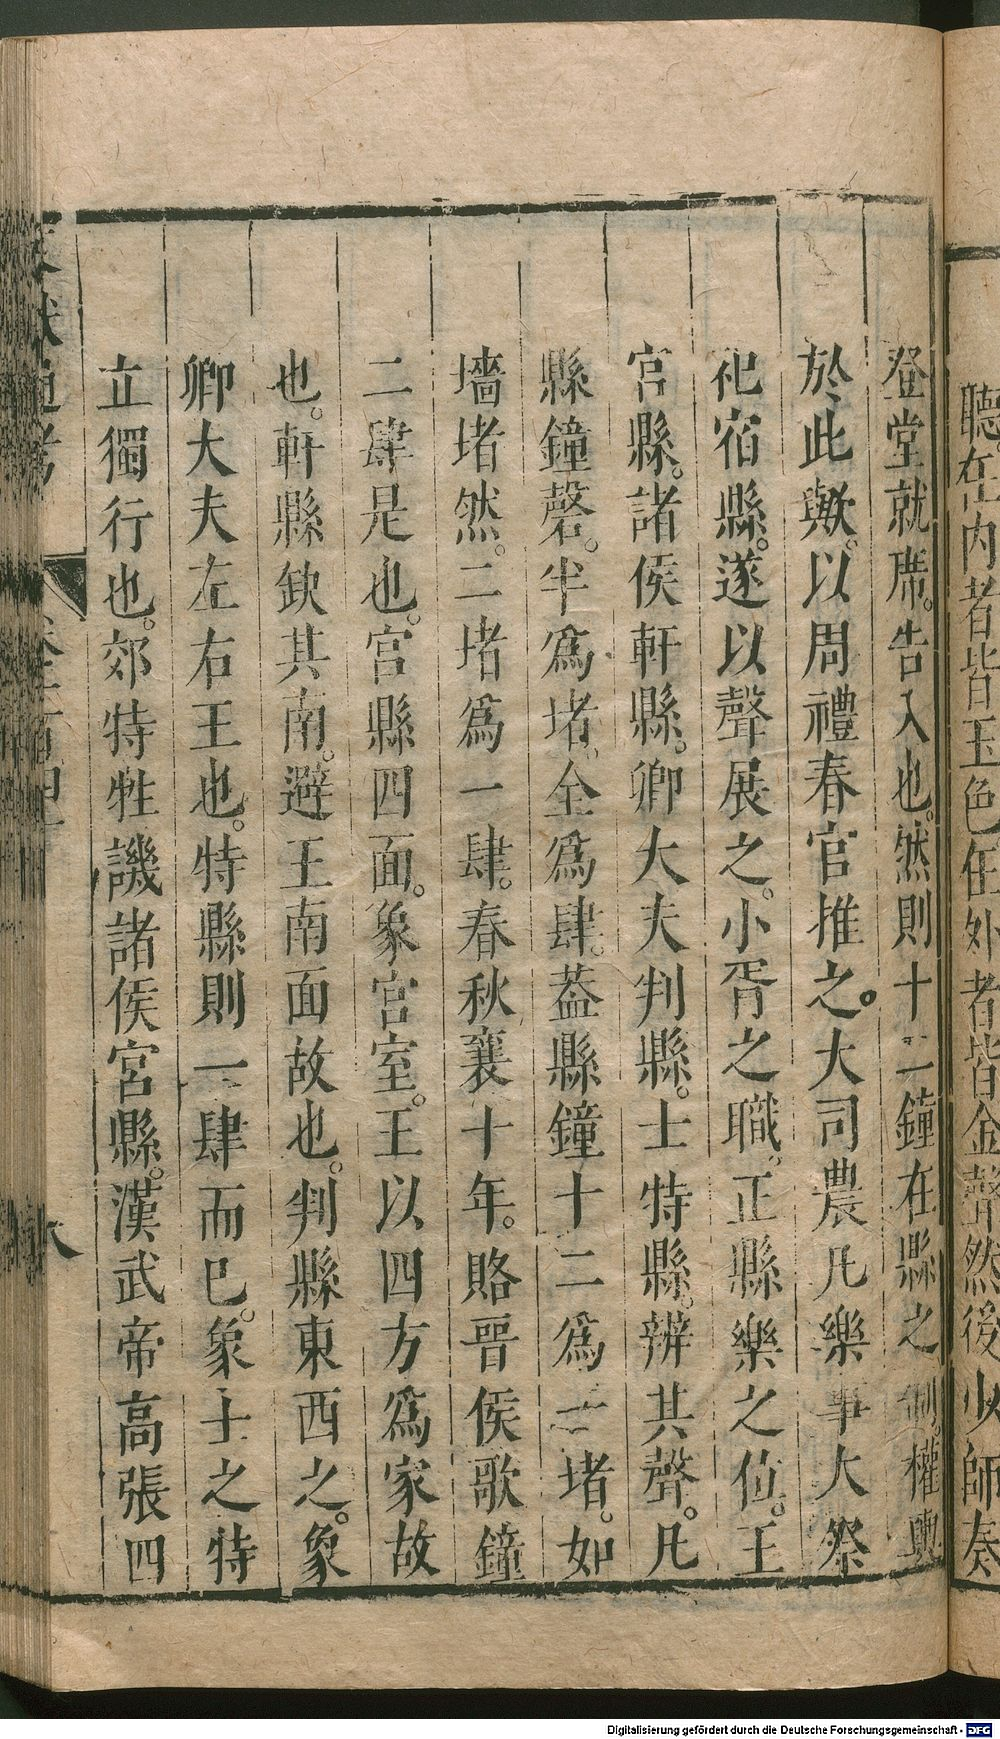 聽在內者皆玉色在外者皆金聲然後少師奏
登堂就席。告入也。然則十二鐘在縣之制。權輿
於此歟。以周禮春官推之。大司農凡樂事大祭
祀宿縣。遂以聲展之。小胥之職。正縣樂之位。王
宮縣。諸侯軒縣。卿大夫判縣。士特縣。辨其聲。凡
縣鐘磬。半爲堵、全爲肆。蓋縣鐘十二爲一堵。如
墻堵然。二堵爲一肆。春秋襄十年。賂晉侯歌鐘
二肆是也。宮縣四面。象宮室。王以四方爲家故
也。軒縣欽其南。避王南面故也。判縣東西之。象
卿大夫左右王也。特縣則一肆而已。象士之特
立獨行也。郊特牲譏諸侯宮縣。漢武帝高張四
文獻通考 卷一百四十 八
Digitalisierung gefördert durch die Deutsche Forschungsgemeinschaft - DFG